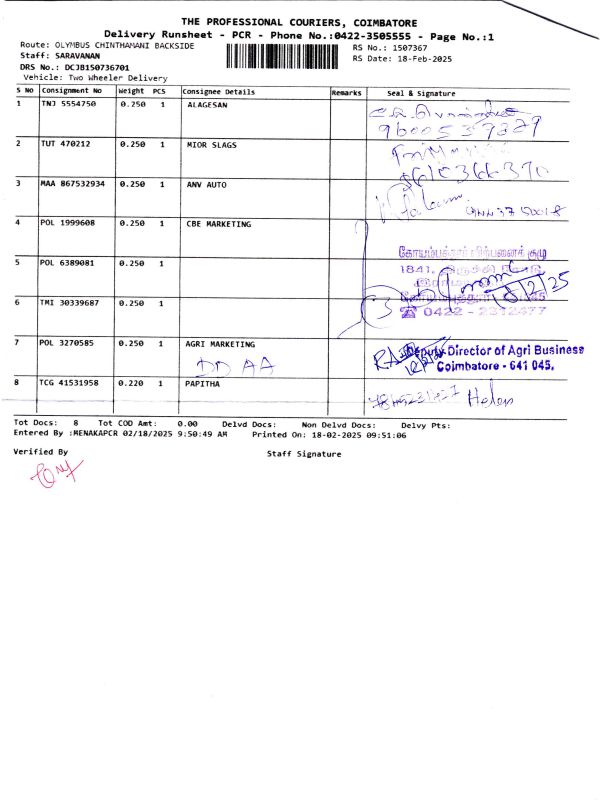 THE PROFESSIONAL COURIERS, COIMBATORE
Delivery Runsheet - PCR - Phone No.:0422-3505555 - Page No.:1
Route: OLYMBUS CHINTHAMANI BACKSIDE
RS No.: 1507367
Staff: SARAVANAN
RS Date: 18-Feb-2025
DRS No.: DCJB150736701
Vehicle: Two Wheeler Delivery
S No Consignment No Weight PCS Consignee Details Remarks Seal & Signature
1 TNJ 5554750 0.250 1 ALAGESAN
2 TUT 470212 0.250 1 MIOR SLAGS
3 MAA 867532934 0.250 1 ANV AUTO
4 POL 1999608 0.250 1 CBE MARKETING
5 POL 6389081 0.250 1
1841,
6 TMI 30339687 0.250 1
☎ 0422 - 2312477
7 POL 3270585 0.250 1 AGRI MARKETING
DD AA
Deputy Director of Agri Business
Coimbatore - 641 045.
8 TCG 41531958 0.220 1 PAPITHA
Helen
Tot Docs: 8 Tot COD Amt: 0.00 Delvd Docs: Non Delvd Docs: Delvy Pts:
Entered By :MENAKAPCR 02/18/2025 9:50:49 AM Printed On: 18-02-2025 09:51:06
Verified By
Staff Signature